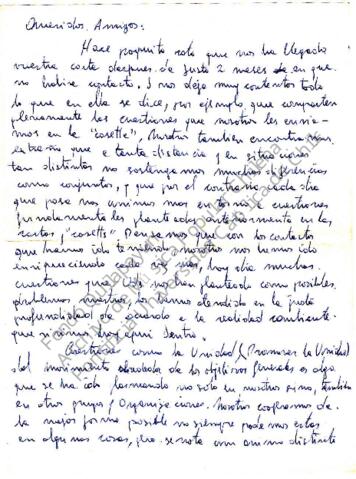 Queridos Amigos:
Hace poquito rato que nos ha llegado
vuestra carta despues de justo 2 meses de en que
no habia contacto. Y nos dejo muy contentos todo
lo que en ella se dice, por ejemplo que comparten
plenamente las cuestiones que nosotros les envia-
mos en la "casette". Nosotros tambien encontramos
extraño que a tanta distancia y en situaciones
tan distintas no sostengamos muchas diferencias
como conjuntos, y que por el contrario cada dia
que pasa nos unimos mas en torno a cuestiones
les planteados anteriormente en las
cartas, "casette". Pensamos que con los contactos
que hemos ido teniendo, nosotros nos hemos ido
enriqueciendo cada vez mas, hoy dia muchas
cuestiones que Uds nos han planteado como posibles
problemas nuestros, los hemos atendido en la justa
profundidad de acuerdo a la realidad cambiante
que vivimos hoy aqui dentro.
Cuestiones como la Unidad, (Promover la Unidad)
del movimiento alrededor de los objetivos generales es algo
que se ha ido formando no solo en nosotros sino, tambien
en otros grupos y Organizaciones. Nosotros cooperamos de
la mejor forma posible no siempre podemos estar
en algunas cosas, pero se nota un animo distinto